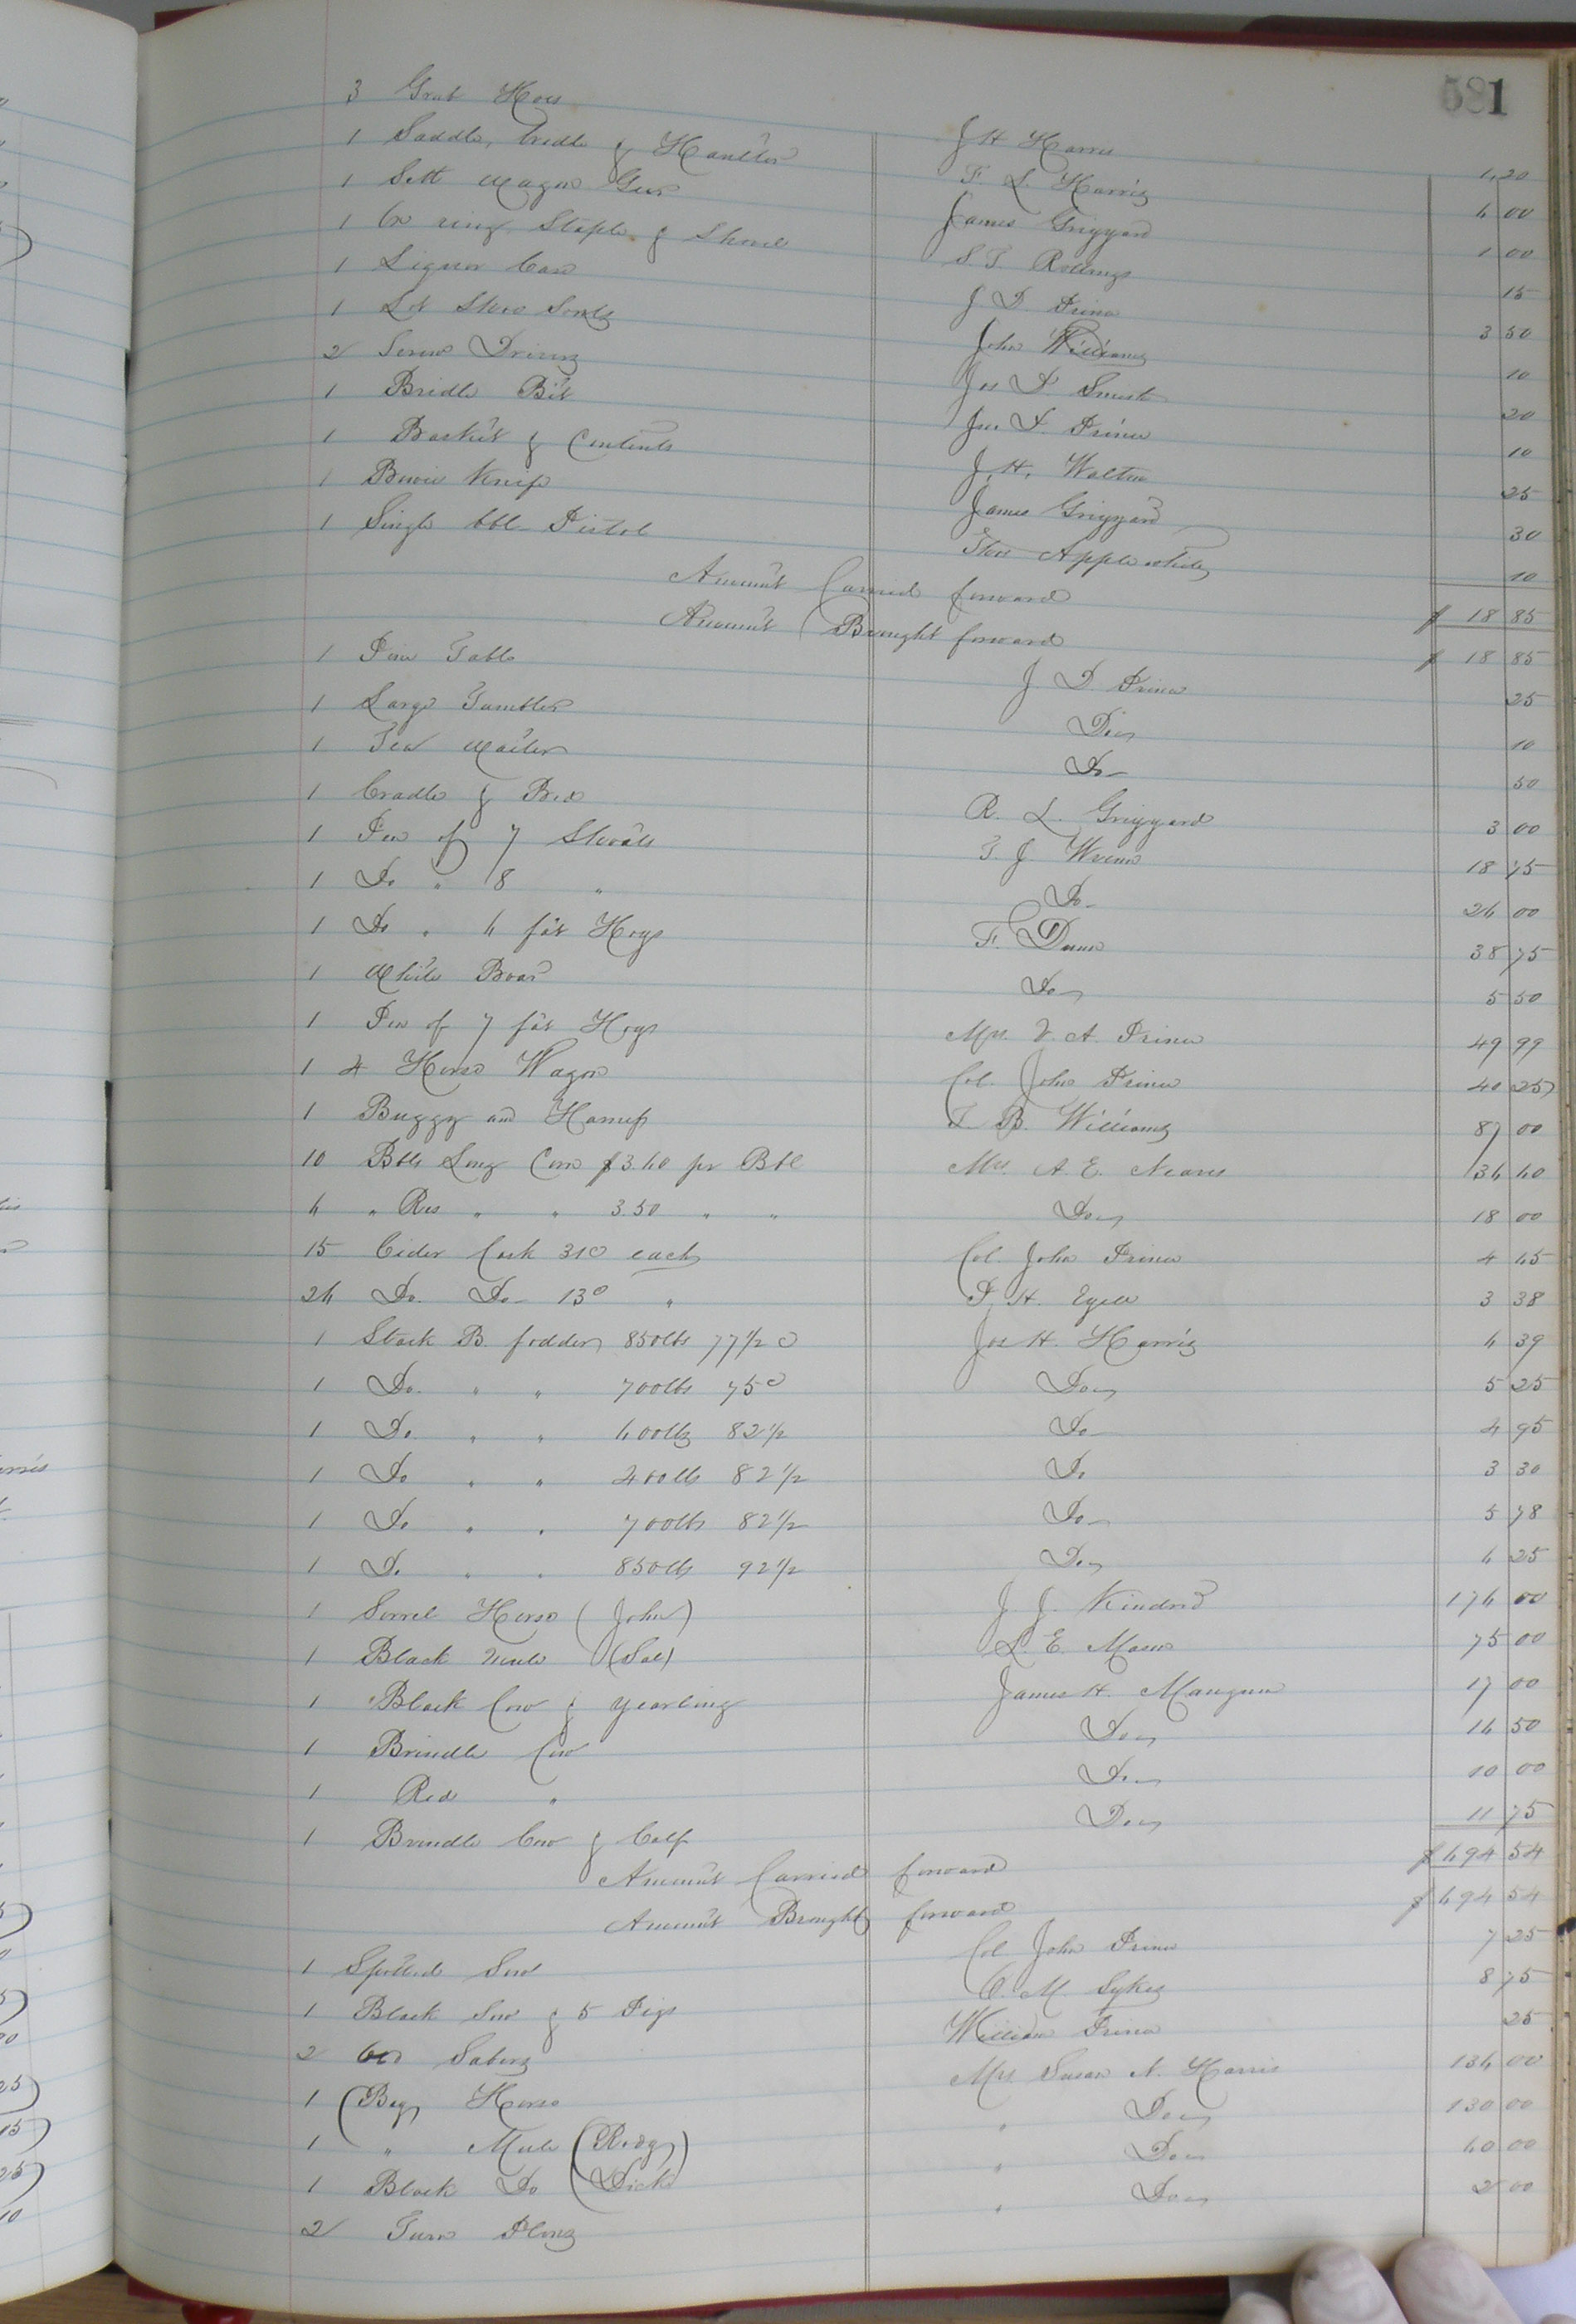 581
3 Grub Hoes J H Harris 1.20
1 Saddle, bridle & Haulter F. L. Harris 6 00
1 Sett Wagon Gear James Grizzard 1 00
1 Ox ring, Staple & Shovel S. T. Rollings 15
1 Liquor Case J D Prince 3 50
1 Lot Shoe Soles John Williams 10
2 Screw Drivers Jos P. 20
1 Bridle Bit Jno. D. Prince 10
1 Basket & Contents J. H. Walton 25
1 Bowie Knife James Grizzard 30
1 Single bbl Pistol Thos Applewhite 10
Amount Carried forward $ 18 85
Amount Brought forward $ 18 85
1 Pine Table J. D. Prince 25
1 Large Tumbler Do 10
1 Tea Waiter Do 50
1 Cradle & Bed R. L. Grizzard 3 00
1 Pen of 7 Shoats T. J. Wrenn 18 75
1 Do " 8 " Do 26 00
1 Do " 6 fat Hogs F. Dunn 38 75
1 White Boar Do 5 50
1 Pen of 7 fat Hogs Mrs. V. A. Prince 49 99
1 4 Horse Wagon Col. John Prince 40 25
1 Buggy and Harness T. B. Williams 87 00
10 Bbls Long Corn $3.60 pr Bbl Mrs. A. E. Neaves 36 60
6 " Res " " 3.50 " " Do 18 00
15 Cider Cask 31c each Col. John Prince 4 65
26 Do. Do 13c " P. H. Ezell 3 38
1 Stack B. fodder 850lbs 77 1/2 c Jos H. Harris 6 39
1 Do. " " 700lbs 75c Do 5 25
1 Do. " " 600lbs 82 1/2 Do 4 95
1 Do " " 400lbs 82 1/2 Do 3 30
1 Do " " 700lbs 82 1/2 Do 5 78
1 Do " " 850lbs 92 1/2 Do 6 25
1 Sorrel Horse (John) J. J. Kindred 176 00
1 Black Mule (Sal) L. E. Mason 75 00
1 Black Cow & yearling James H. Mangum 17 00
1 Brindle Cow Do 16 50
1 Red " Do 10 00
1 Brindle Cow & Calf Do 11 75
Amount Carried forward $694 54
Amount Brought forward $694 54
1 Spotted Sow Col John Prince 7 25
1 Black Sow & 5 Pigs C. M. Sykes 8 75
2 Old Sabers William Prince 25
1 Bay Horse Mrs. Susan N. Harris 136 00
1 " Mule (Rody) " Do 130 00
1 Black Do (Dick) " Do 60 00
2 Turn Plows " Do 2 00